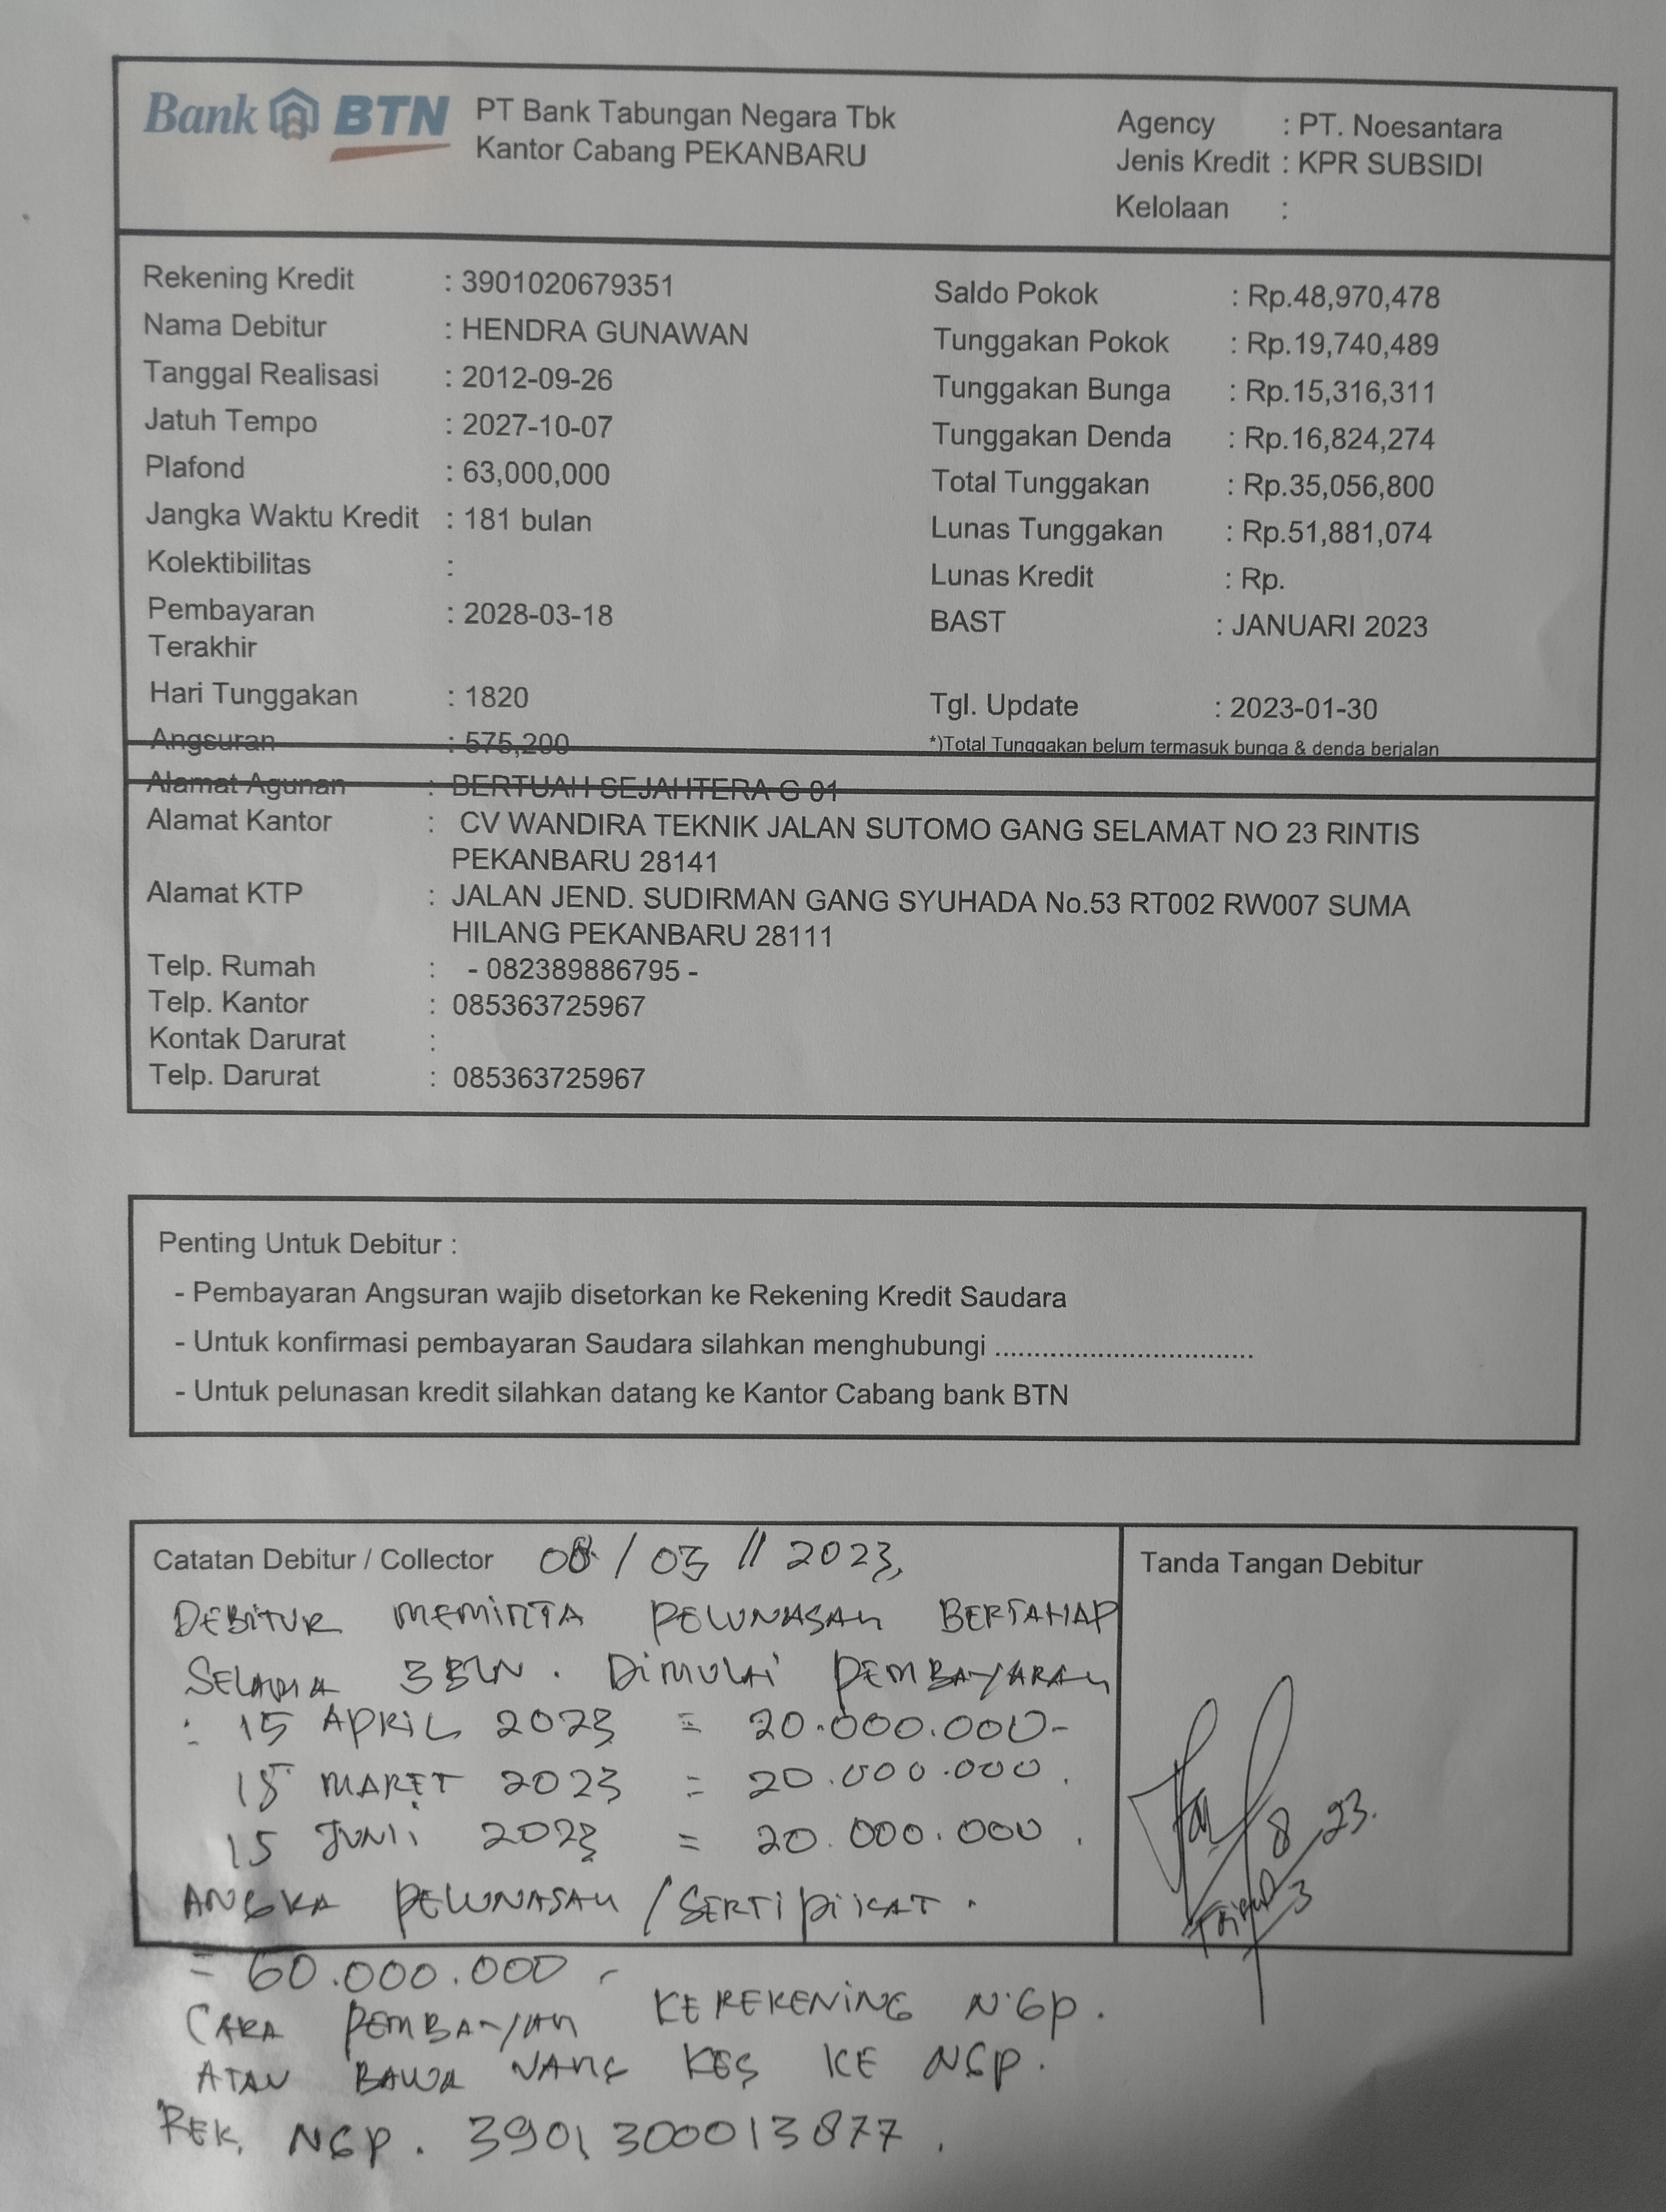 Bank BTN PT Bank Tabungan Negara Tbk
Kantor Cabang PEKANBARU
Agency : PT. Noesantara
Jenis Kredit : KPR SUBSIDI
Kelolaan :
Rekening Kredit : 3901020679351
Nama Debitur : HENDRA GUNAWAN
Tanggal Realisasi : 2012-09-26
Jatuh Tempo : 2027-10-07
Plafond : 63,000,000
Jangka Waktu Kredit : 181 bulan
Kolektibilitas :
Pembayaran : 2028-03-18
Terakhir
Hari Tunggakan : 1820
Angsuran : 575,200
Saldo Pokok : Rp.48,970,478
Tunggakan Pokok : Rp.19,740,489
Tunggakan Bunga : Rp.15,316,311
Tunggakan Denda : Rp.16,824,274
Total Tunggakan : Rp.35,056,800
Lunas Tunggakan : Rp.51,881,074
Lunas Kredit : Rp.
BAST : JANUARI 2023
Tgl. Update : 2023-01-30
*)Total Tunggakan belum termasuk bunga & denda berjalan
Alamat Agunan : BERTUAH SEJAHTERA G 01
Alamat Kantor : CV WANDIRA TEKNIK JALAN SUTOMO GANG SELAMAT NO 23 RINTIS
PEKANBARU 28141
Alamat KTP : JALAN JEND. SUDIRMAN GANG SYUHADA No.53 RT002 RW007 SUMA
HILANG PEKANBARU 28111
Telp. Rumah : - 082389886795 -
Telp. Kantor : 085363725967
Kontak Darurat :
Telp. Darurat : 085363725967
Penting Untuk Debitur :
- Pembayaran Angsuran wajib disetorkan ke Rekening Kredit Saudara
- Untuk konfirmasi pembayaran Saudara silahkan menghubungi .................................
- Untuk pelunasan kredit silahkan datang ke Kantor Cabang bank BTN
Catatan Debitur / Collector 08 / 03 // 2023,
DEBITUR MEMINTA PELUNASAN BERTAHAP
SELAMA 3 BLN . DIMULAI PEMBAYARAN
: 15 APRIL 2023 = 20.000.000-
15 MARET 2023 = 20.000.000.
15 JUNI, 2023 = 20.000.000.
ANGKA PELUNASAN / SERTIPIKAT .
= 60.000.000 -
CARA PEMBAYAN KEREKENING NGP.
ATAU BAWA UANG KES KE NGP.
REK. NGP. 3901300013877.
Tanda Tangan Debitur
8 23.
3